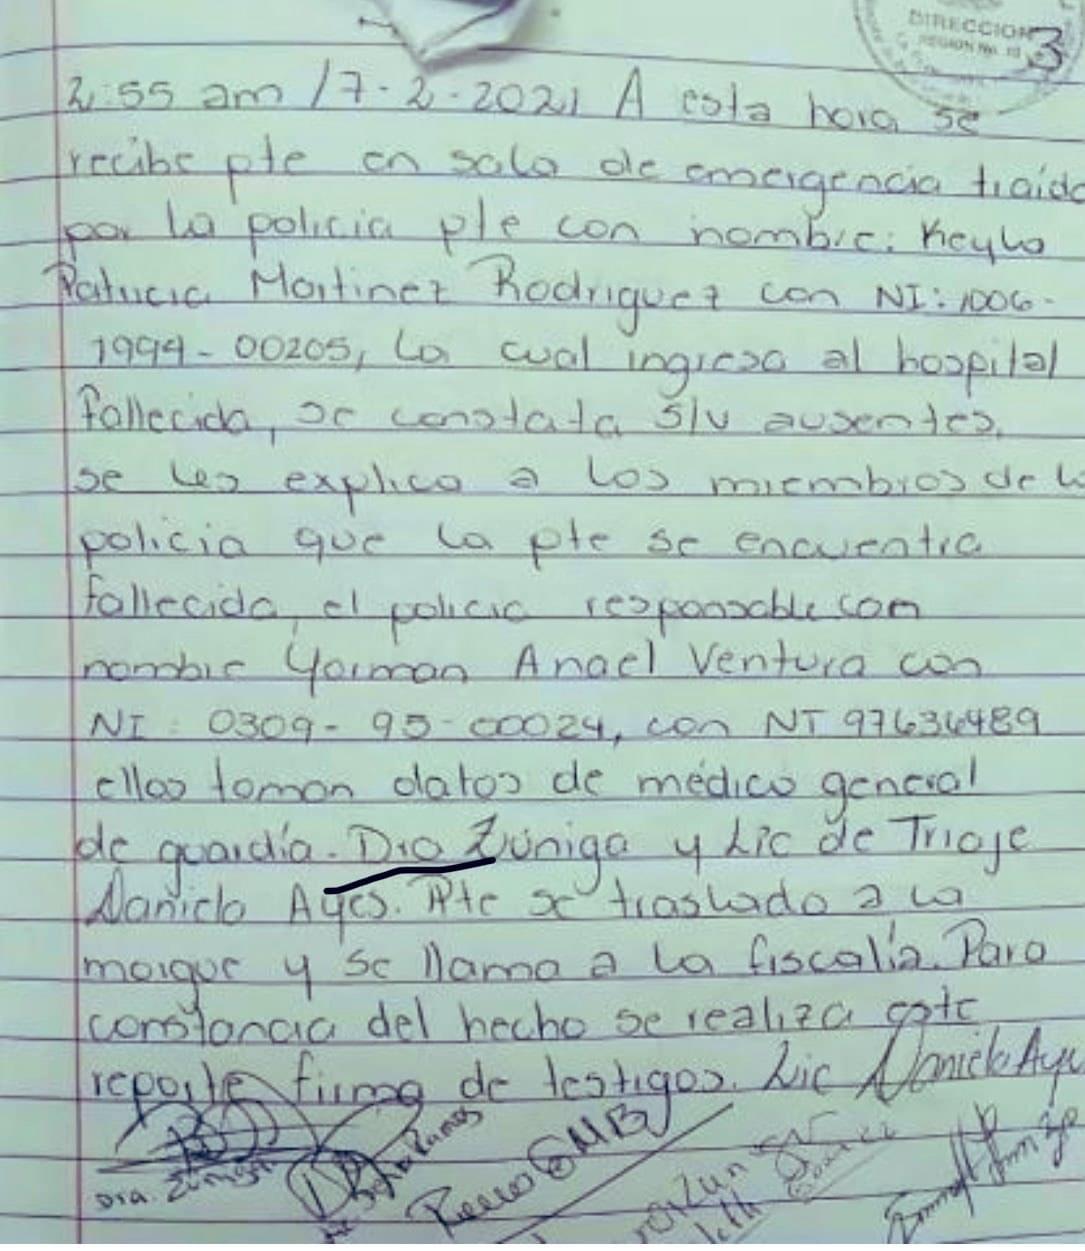 DIRECCION
REGION No. 10
3
2:55 am 17-2-2021 A esta hora se
recibe pte en sala de emergencia traida
por la policia pte con nombre: Keyla
Patricia Martinez Rodriguez con NI: 1006-
1994-00205, la cual ingresa al hospital
fallecida, se constata S/V ausentes,
se les explica a los miembros de la
policia que la pte se encuentra
fallecida, el policia responsable con
nombre Yarman Anael Ventura con
NI: 0309-95-00024, con NT 97636489
ellos toman datos de médico general
de guardía. Dra Zúniga y Lic de Triaje
Daniela Ayes. Pte se traslada a la
morgue y se llama a la fiscalía. Para
constancia del hecho se realiza este
reporte firma de testigos. Lic Daniela Aye
Dra. Zúniga
Ramos